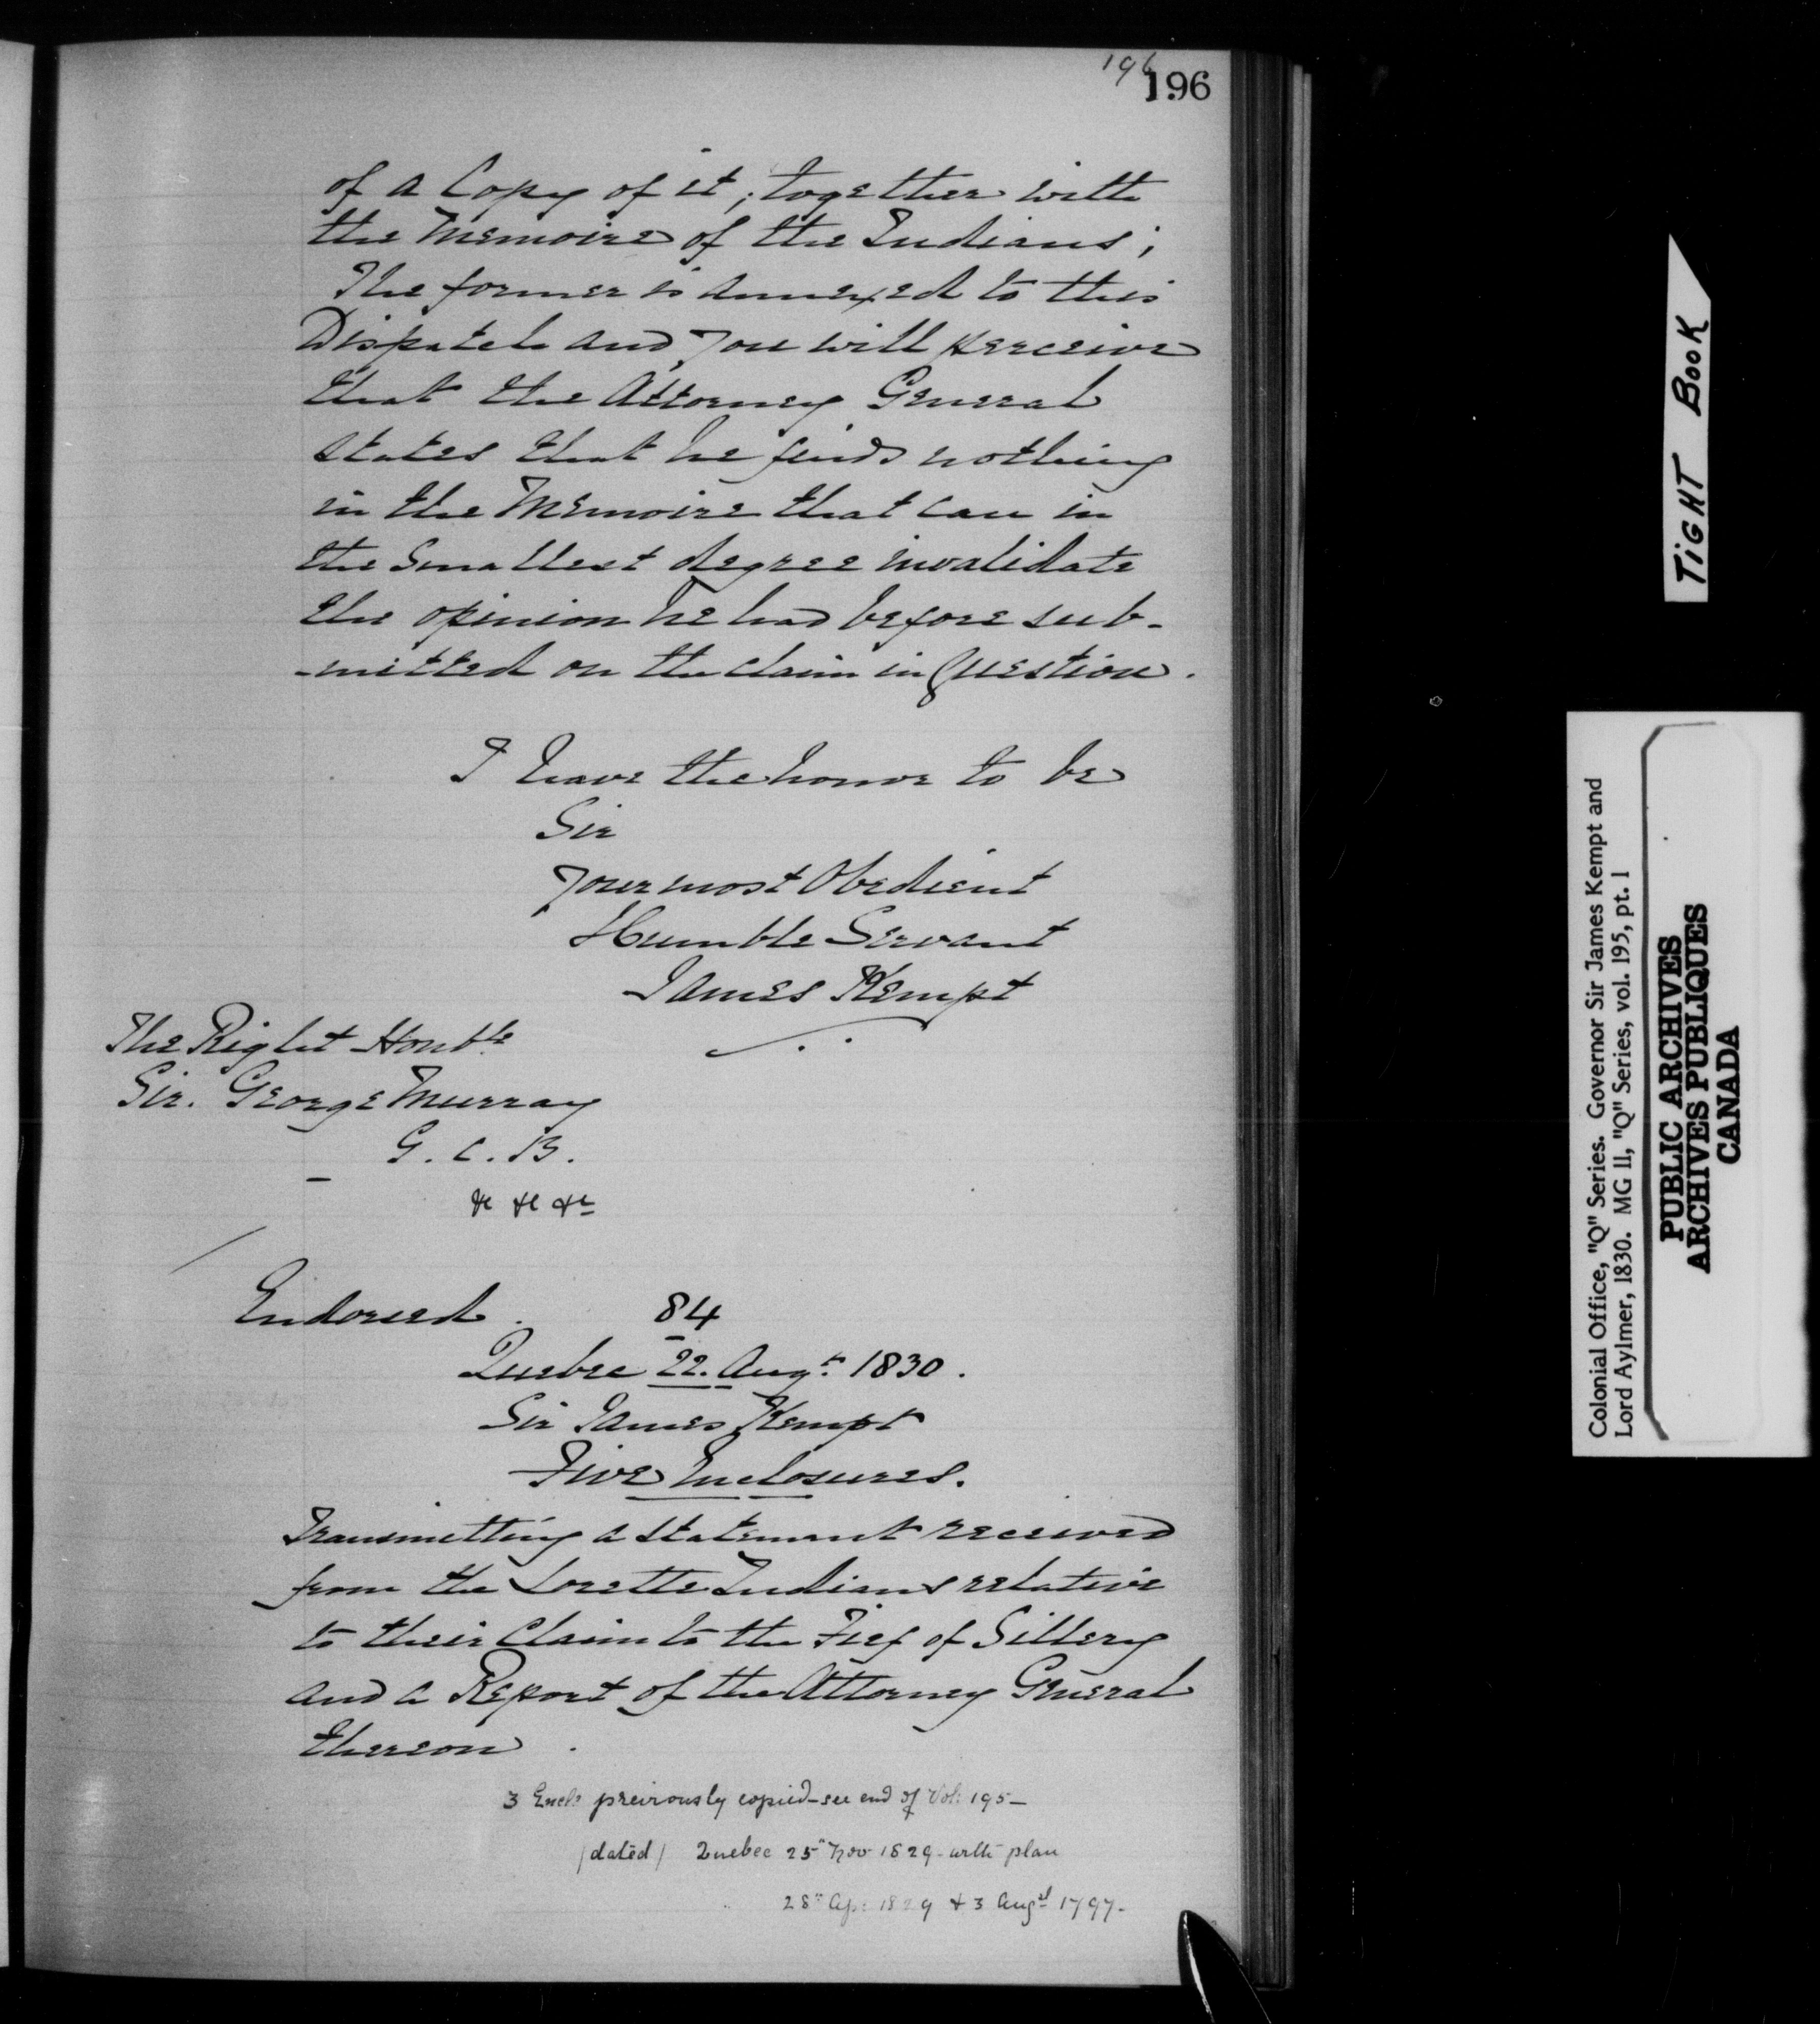 196
196
of a Copy of it; together with
the Memoire of the Indians;
The former is annexed to this
Dispatch and you will perceive
that the Attorney General
states that he finds nothing
in the Memoire that can in
the smallest degree invalidate
the opinion he had before sub-
-mitted on the claim in Question.
I have the honor to be
Sir
Your most Obedient
Humble Servant
James Kempt
The Right Honble
Sir. George Murray
G. C. B.
&c &c &c
Endorsed. 84
Quebec 22. Augt 1830.
Sir James Kempt
Five Enclosures.
Transmitting a Statement received
from the Lorette Indians relative
to their Claim to the Fief of Sillery
and a Report of the Attorney General
thereon.
3 Encls previously copied - see end of Vol: 195 -
/dated/ Quebec 25th Nov 1829 - with plan
28th Ap: 1829 & 3 Augst 1797 -
TIGHT BOOK
Colonial Office, "Q" Series. Governor Sir James Kempt and
Lord Aylmer, 1830. MG 11, "Q" Series, vol. 195, pt. 1
PUBLIC ARCHIVES
ARCHIVES PUBLIQUES
CANADA